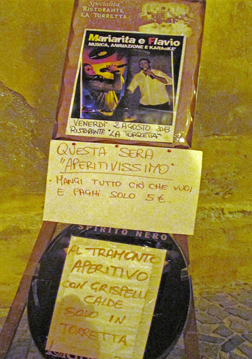 Specialità
RISTORANTE
LA TORRETTA
Mariarita e Flavio
MUSICA, ANIMAZIONE E KARAOKE
VENERDI' 2 AGOSTO 2013
RISTORANTE "LA TORRETTA"
QUESTA SERA
"APERITIVISSIMO"
• MANGI TUTTO CIÒ CHE VUOI
E PAGHI SOLO 5 €
SPIRITO NERO
AL TRAMONTO
APERITIVO
CON GRISPELLE
CALDE
SOLO IN
TORRETTA